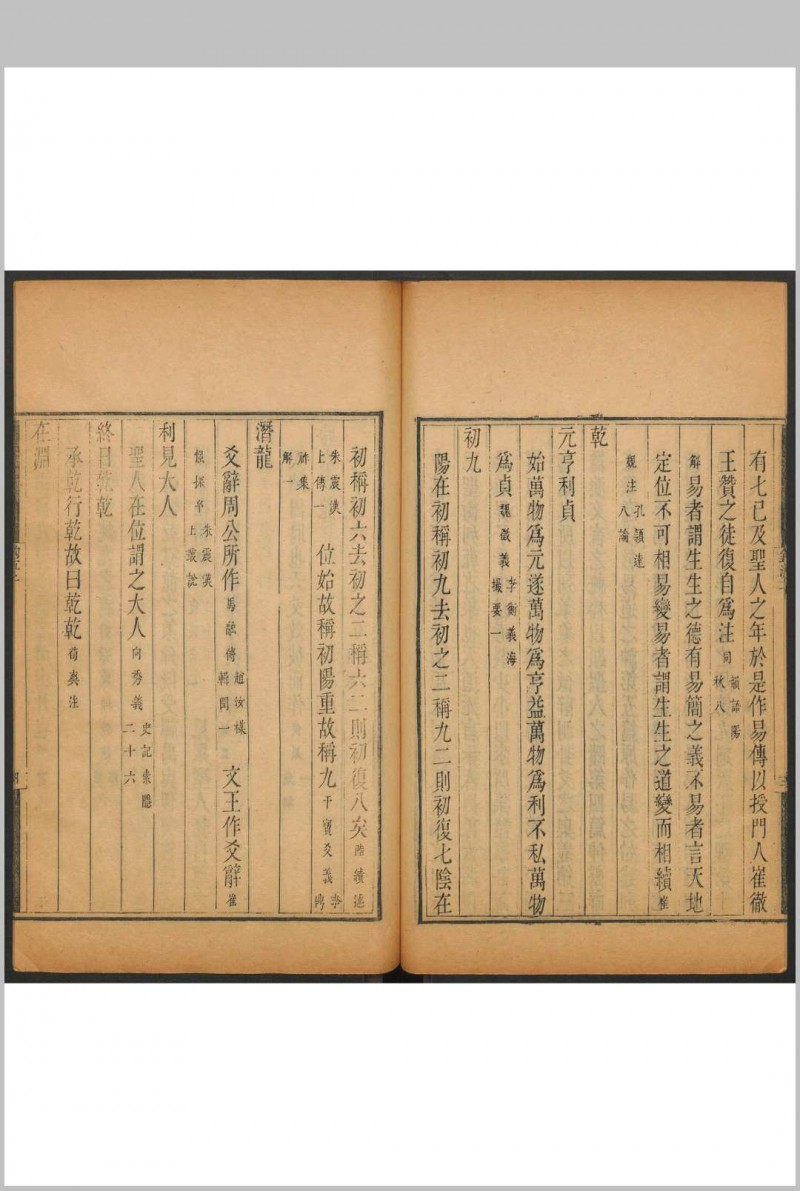 有七已及聖人之年於是作易傳以授門人崔徹
王贊之徒復自爲注同 韻語陽秋八
解易者謂生生之德有易簡之義不易者言天地
定位不可相易變易者謂生生之道變而相續崔
覲注 孔穎達八論
乾
元亨利貞
始萬物爲元遂萬物爲亨益萬物爲利不私萬物
爲貞魏徵義 李衡義海撮要一
初九
陽在初稱初九去初之二稱九二則初復七陰在
初稱初六去初之二稱六二則初復八矣陸績述
朱震漢上傳一 位始故稱初陽重故稱九干寶爻義 李
鼎集解一
潛龍
爻辭周公所作馬融傳 趙汝楳輯聞一 文王作爻辭崔
憬探平 朱震漢上叢說
利見大人
聖人在位謂之大人向秀義 史記索隱二十六
終日乾乾
承乾行乾故曰乾乾荀爽注
在淵